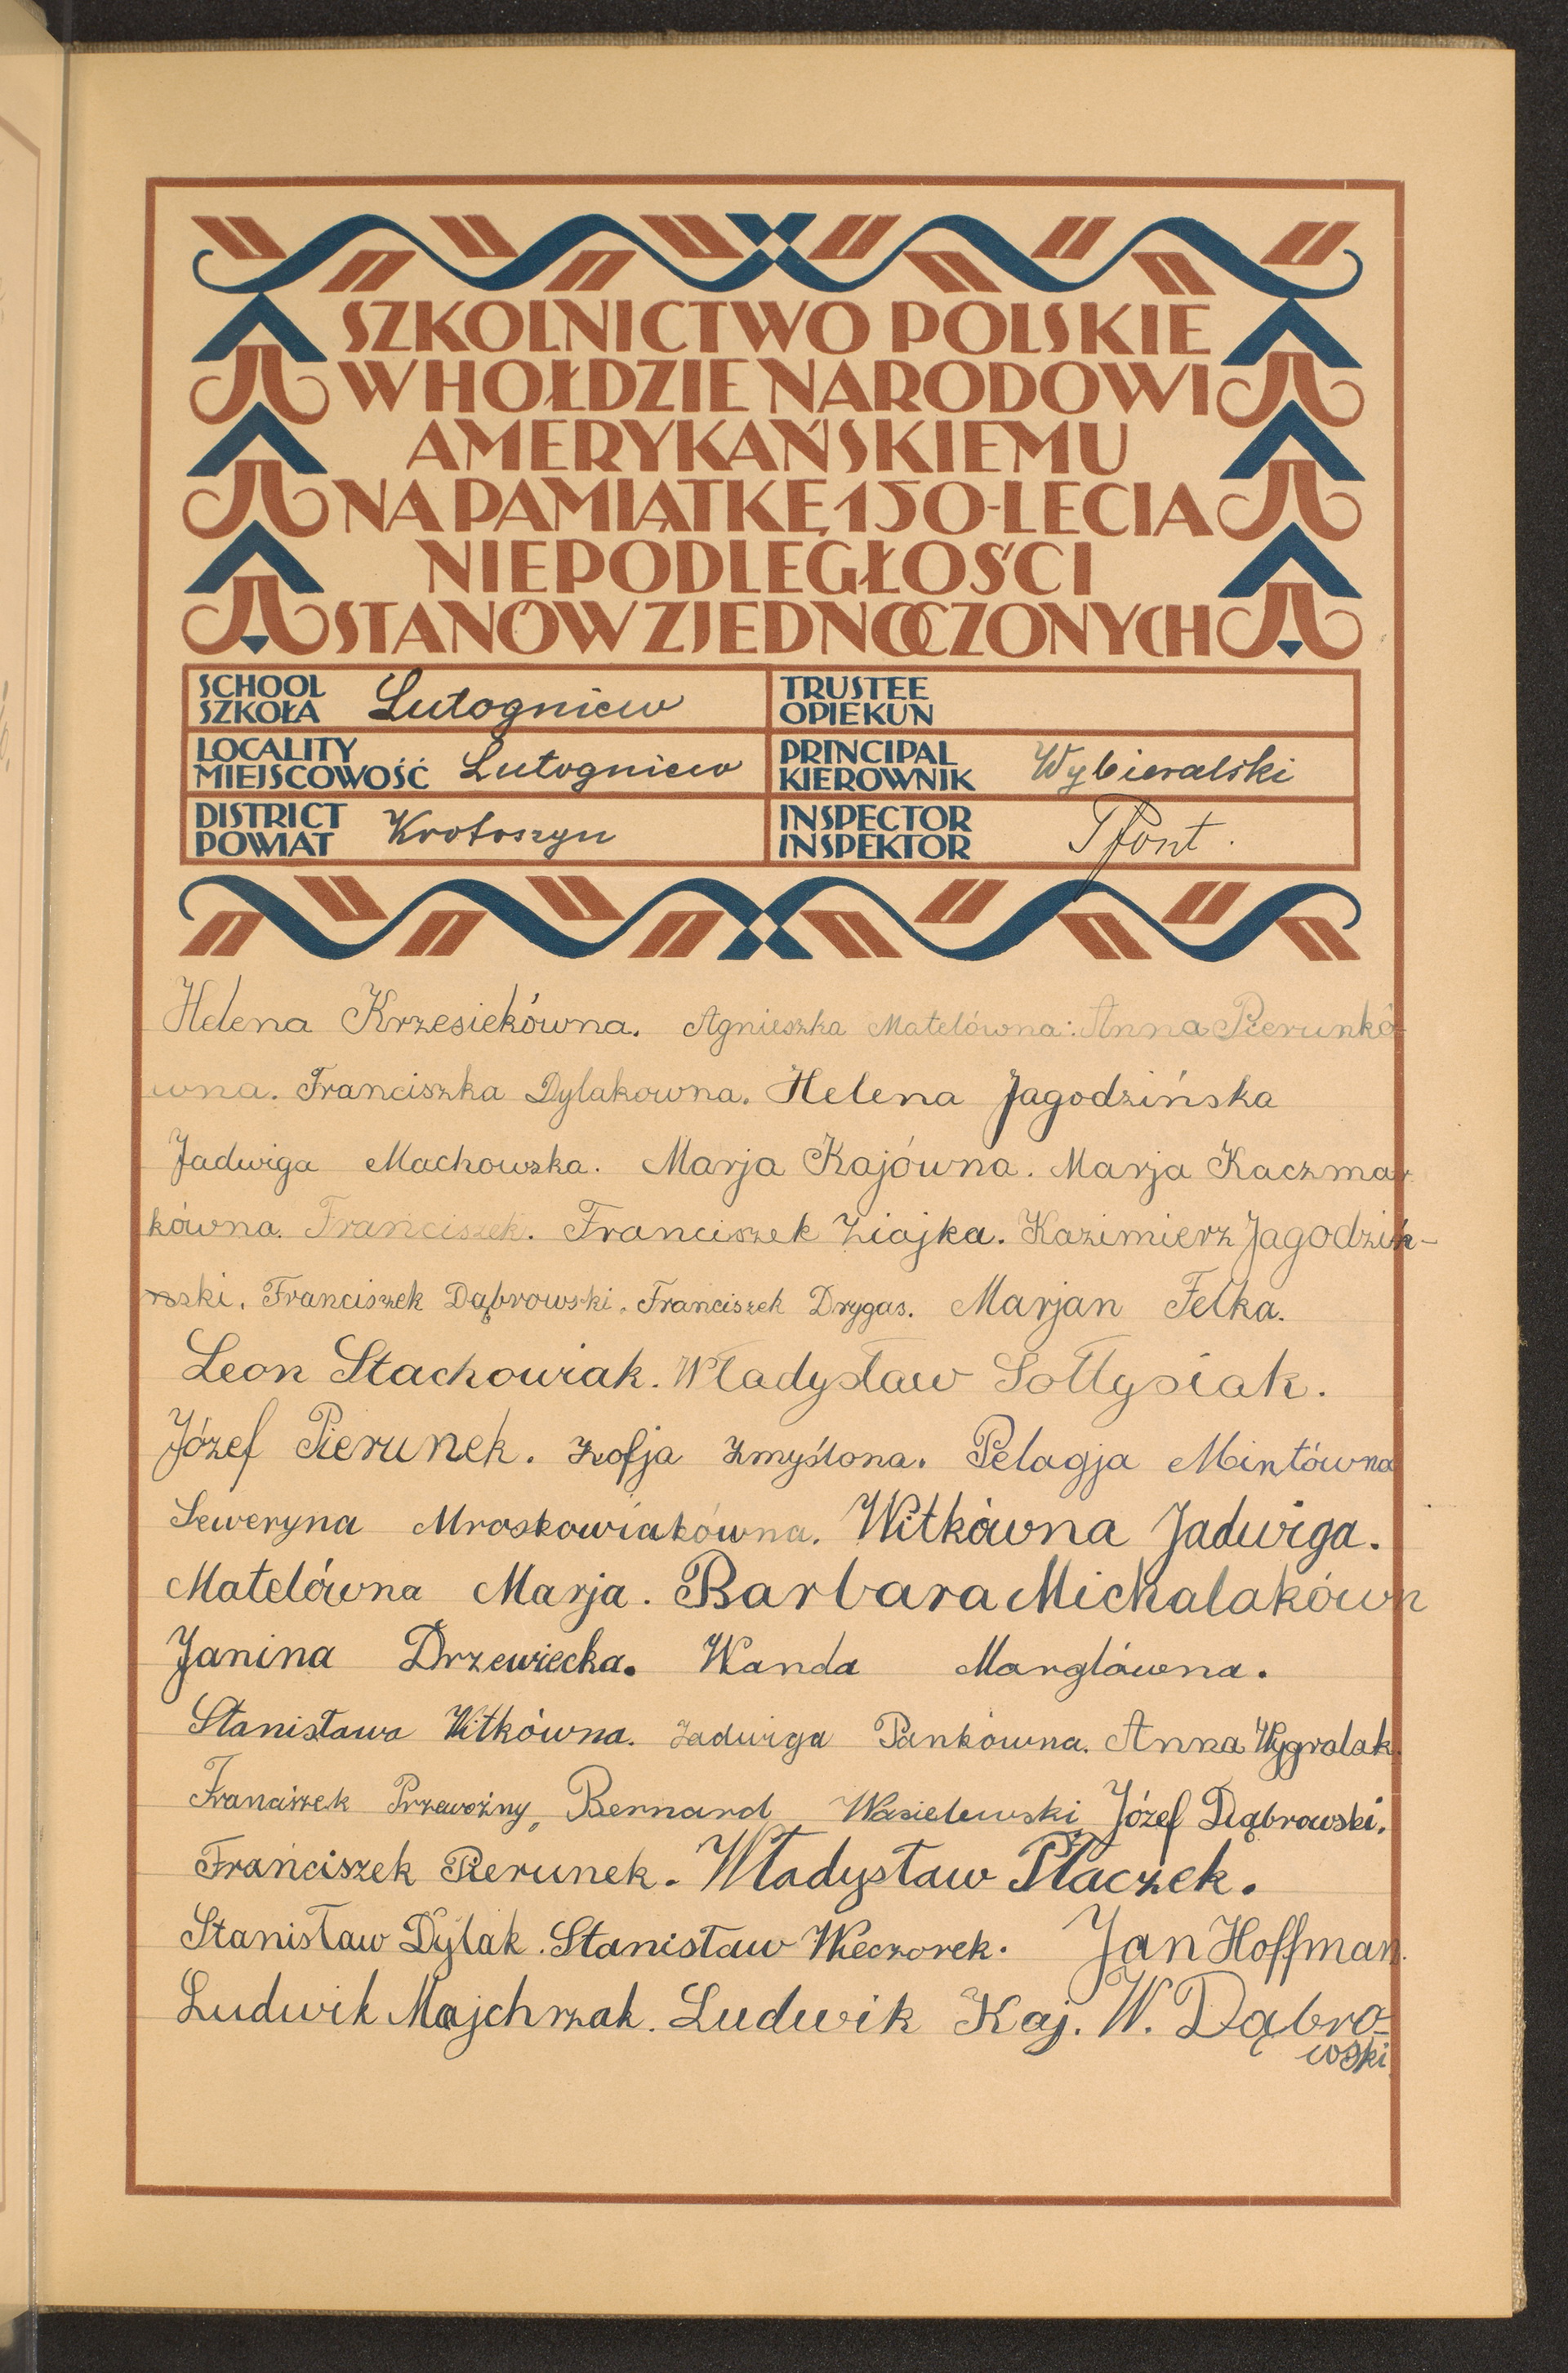 SZKOLNICTWO POLSKIE
W HOŁDZIE NARODOWI
AMERYKAŃSKIEMU
NA PAMIĄTKĘ 150-LECIA
NIEPODLEGŁOŚCI
STANÓW ZJEDNOCZONYCH
SCHOOL
SZKOŁA Lutogniew
TRUSTEE
OPIEKUN
LOCALITY
MIEJSCOWOŚĆ Lutogniew
PRINCIPAL
KIEROWNIK Wybieralski
DISTRICT
POWIAT Krotoszyn
INSPECTOR
INSPEKTOR Pfont.
Helena Krzesiekówna. Agnieszka Matelówna. Anna Pierunkó
wna. Franciszka Dylakowna. Helena Jagodzińska
Jadwiga Machowska. Marja Kajówna. Marja Kaczmar
kówna. Franciszek. Franciszek Ziajka. Kazimierz Jagodziń-
nski. Franciszek Dąbrowski. Franciszek Drygas. Marjan Felka.
Leon Stachowiak. Władysław Sołtysiak.
Józef Pierunek. Zofja Zmyślona. Pelagja Mintówna
Seweryna Mroskowiakówna. Witkówna Jadwiga.
Matelówna Marja. Barbara Michalakówn
Janina Drzewiecka. Wanda Marglówna.
Stanisława Witkówna. Jadwiga Pankówna. Anna Wygralak.
Franciszek Przewoźny, Bernard Wasielewski, Józef Dąbrowski.
Franciszek Pierunek. Władysław Płaczek.
Stanisław Dylak. Stanisław Wieczorek. Jan Hoffman.
Ludwik Majchrzak. Ludwik Kaj. W. Dąbro-
wski